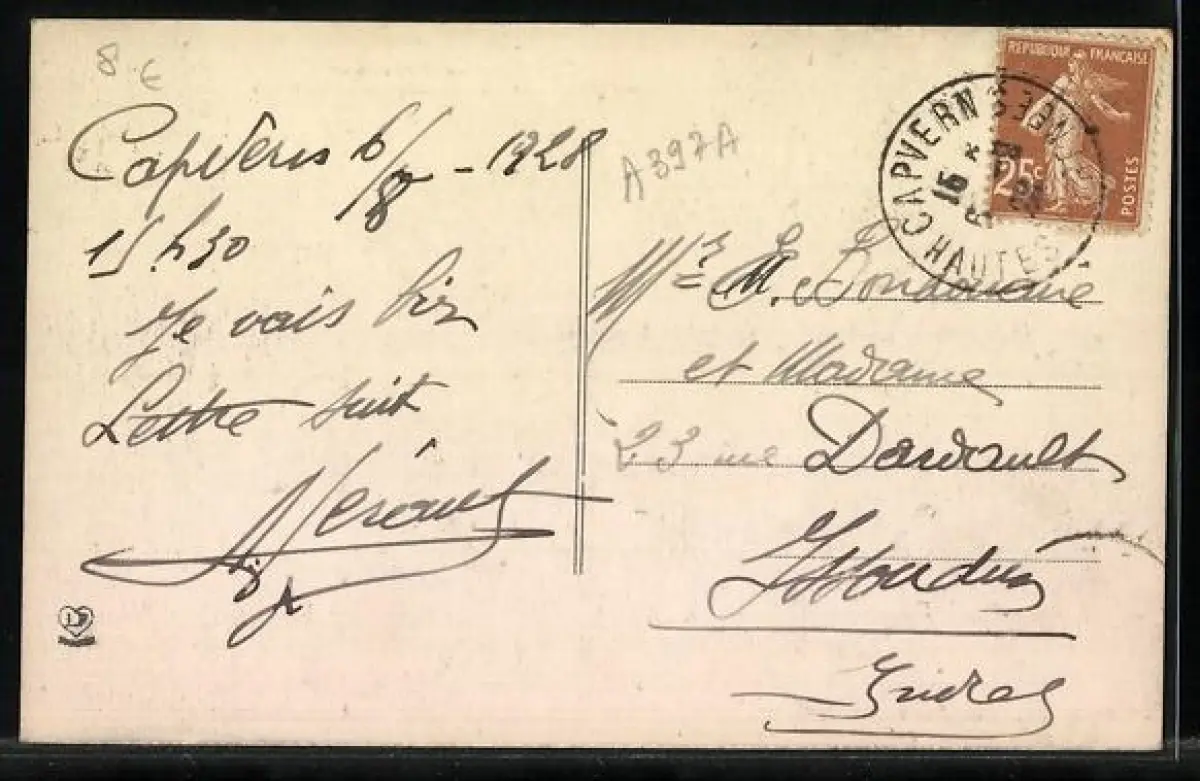 8 €
Capvern 6/8 - 1928
15 h 30
Je vais bien
Lettre suit
A397A
REPUBLIQUE FRANÇAISE
25c
POSTES
CAPVERN
15 *
HAUTES
Mr E.
et Madame
23 rue Dardault
Issoudun
Indre